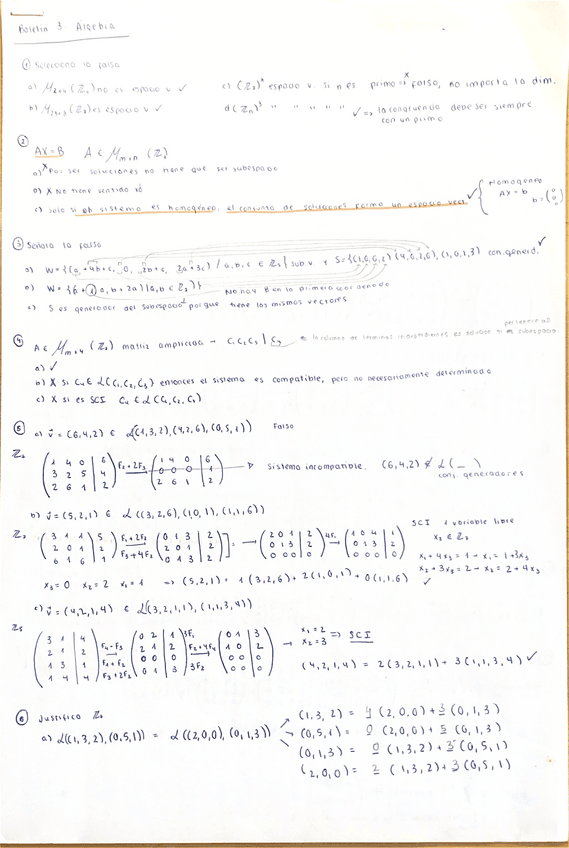 Boletín 3 Algebra
① Selecciona la falsa
a) M₂ₓ₄(ℤ₂) no es espacio v ✓ c) (ℤ₃)ⁿ espacio v. si n es primo → falso, no importa la dim.
b) M₂ₓ₃(ℤ₅) es espacio v ✓ d) (ℤₙ)³ " " " " " ✓ => la congruencia debe ser siempre
con un primo
②
AX=B A ∈ Mₘₓₙ (ℤ₂)
a) X Por ser soluciones no tiene que ser subespacio
b) X No tiene sentido
c) Solo si el sistema es homogéneo, el conjunto de soluciones forma un espacio vect ✓ { Homogéneo AX = b b = (0 0 0)
③ Señala la falsa
a) W = {(a+4b+c, 0, 2b+c, 2a+3c) / a,b,c ∈ ℤ₅} sub.v y S = {(1,0,0,2)(4,0,2,0),(1,0,1,3) con.generd. ✓
b) W = {(b+1, a, b+2a) | (a,b ∈ ℤ₃)} No hay B en la primera coordenada
c) S es generador del subespacio porque tiene los mismos vectores
④ A ∈ Mₘₓ₄ (ℤ₂) matriz ampliada → C₁ C₂ C₃ | C₄
a) ✓
b) X Si C₄ ∈ L(C₁,C₂,C₃) entonces el sistema es compatible, pero no necesariamente determinado
c) X si es SCI C₄ ∈ L(C₁,C₂,C₃)
⑤ a) v⃗ = (6,4,2) ∈ L((1,3,2),(4,2,6),(0,5,1)) Falso
ℤ₇ (1 4 0 | 6
3 2 5 | 4
2 6 1 | 2) F₂+2F₃ → (1 4 0 | 6
0 0 0 | 1
2 6 1 | 2) → Sistema incompatible. (6,4,2) ∉ L(_)
conj. generadores
b) v⃗ = (5,2,1) ∈ L((3,2,6),(1,0,1),(1,1,6))
ℤ₇ (3 1 1 | 5
2 0 1 | 2
6 1 6 | 1) F₁+2F₂ F₃+4F₂ → (0 1 3 | 2
2 0 1 | 2
0 1 3 | 2) → (2 0 1 | 2
0 1 3 | 2
0 0 0 | 0) 4F₁ → (1 0 4 | 1
0 1 3 | 2
0 0 0 | 0) SCI 1 variable libre
x₃ ∈ ℤ₇
x₁+4x₃ = 1 → x₁ = 1+3x₃
x₂+3x₃ = 2 → x₂ = 2+4x₃
x₃=0 x₂=2 x₁=1 => (5,2,1) = 1(3,2,6)+2(1,0,1)+0(1,1,6) ✓
c) v⃗ = (4,2,1,4) ∈ L((3,2,1,1),(1,1,3,4))
ℤ₅ (3 1 | 4
2 1 | 2
1 3 | 1
1 4 | 4) F₄-F₃ F₁+F₂ F₃+2F₂ → (0 2 | 1
2 1 | 2
0 0 | 0
0 1 | 3) 3F₁ F₂+4F₄ 3F₂ → (0 1 | 3
1 0 | 2
0 0 | 0
0 0 | 0) → x₁=2 x₂=3 => SCI
(4,2,1,4) = 2(3,2,1,1)+3(1,1,3,4) ✓
⑥ Justifica ℤ₇
a) L((1,3,2),(0,5,1)) = L((2,0,0),(0,1,3))
(1,3,2) = 4(2,0,0)+3(0,1,3)
(0,5,1) = 0(2,0,0)+5(0,1,3)
(0,1,3) = 0(1,3,2)+3(0,5,1)
(2,0,0) = 2(1,3,2)+3(0,5,1)